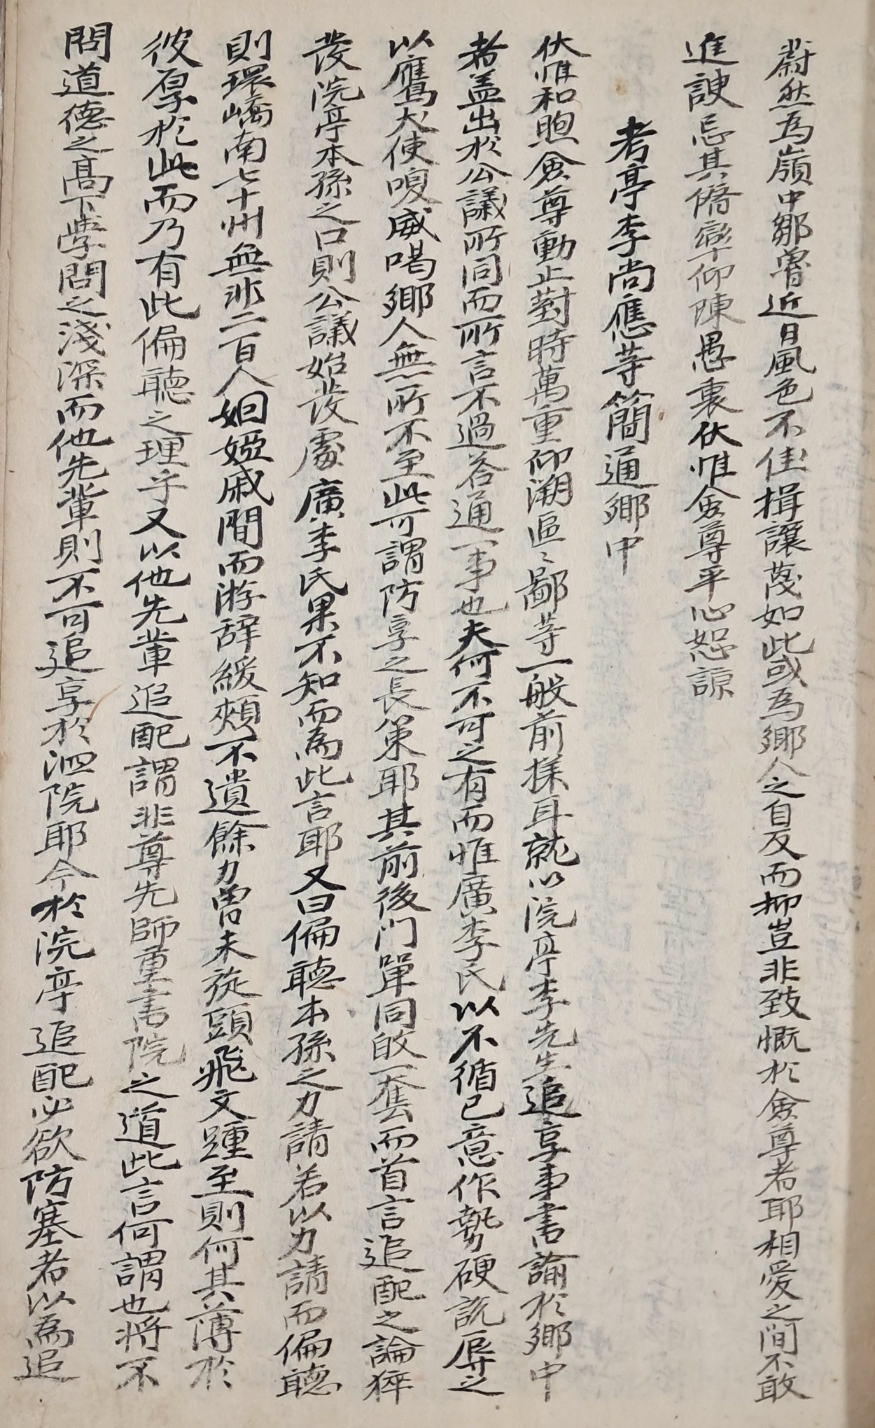 蔚然爲嶺中鄒魯近日風色不佳揖讓蔑如此或爲鄕人之自反而抑豈非致慨於僉尊者耶相愛之間不敢
進諛忘其脩辭仰陳愚衷伏惟僉尊平心恕諒
考亭李尙應等簡通鄕中
伏惟和煦僉尊動止對時萬重仰溯區〻鄙等一般前樣耳就以浣亭李先生追享事書諭於鄕中
者盖出於公議所同而所言不過答通一事也夫何不可之有而惟廣李氏以不循己意作勢硬說辱之
以鷹犬使嗅威喝鄕人無所不至此可謂防享之長策耶其前後门單同啟一套而首言追配之論猝
發浣亭本孫之口則公議始發處廣李氏果不知而爲此言耶又曰偏聽本孫之力請若以力請而偏聽
則環嶠南七十州無非二百人姻婭戚間而游辭緩頰不遺餘力曾未旋頭飛文踵至則何其薄於
彼厚於此而乃有此偏聽之理乎又以他先輩追配謂非尊先師重書院之道此言何謂也將不
問道德之高下學問之淺深而他先輩則不可追享於泗院耶今於浣亭追配必欲防塞者以爲追